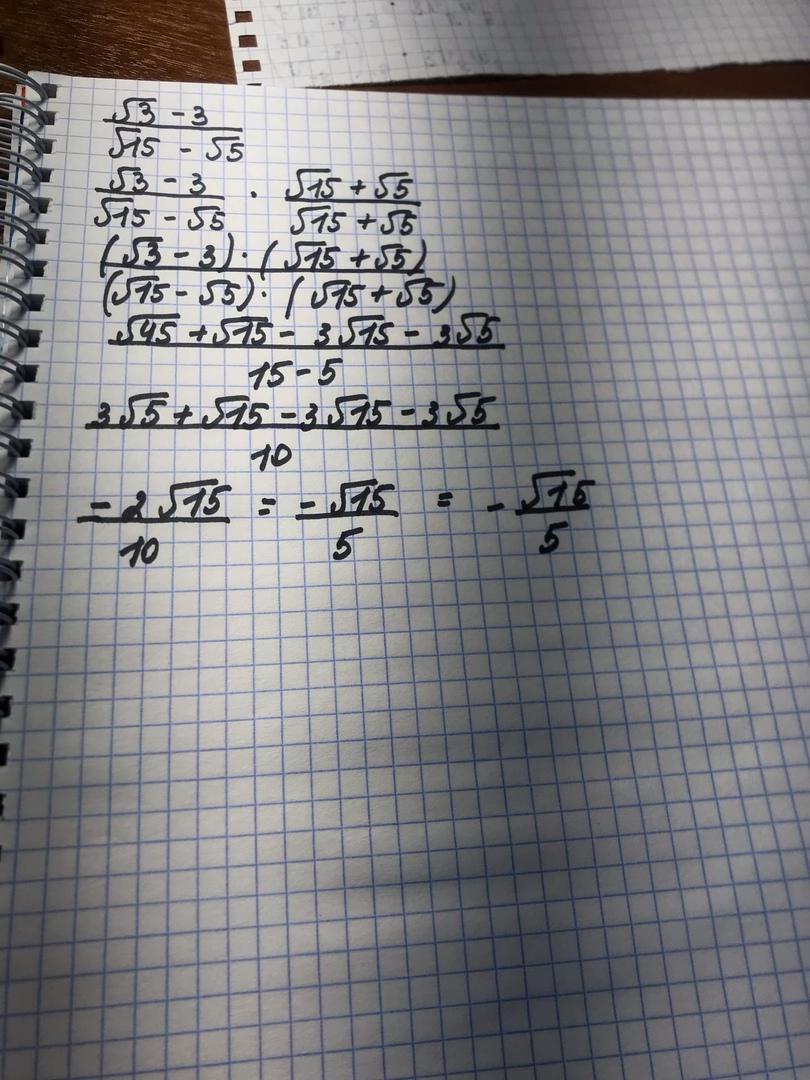 √3 - 3
√15 - √5
√3 - 3 · √15 + √5
√15 - √5 √15 + √5
(√3 - 3) · (√15 + √5)
(√15 - √5) · (√15 + √5)
√45 + √15 - 3√15 - 3√5
15 - 5
3√5 + √15 - 3√15 - 3√5
10
-2√15 = -√15 = - √15
10 5 5